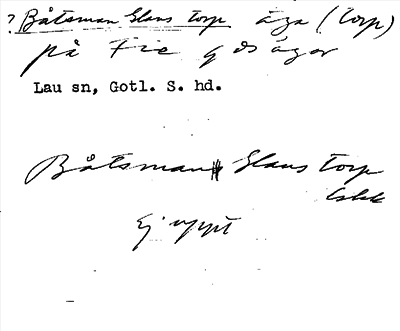 ? Båtsman Glans torp äga (torp)
på Fie gårdsägor
Lau sn, Gotl. S. hd.
Båtsman Glans torp
Ej uppt